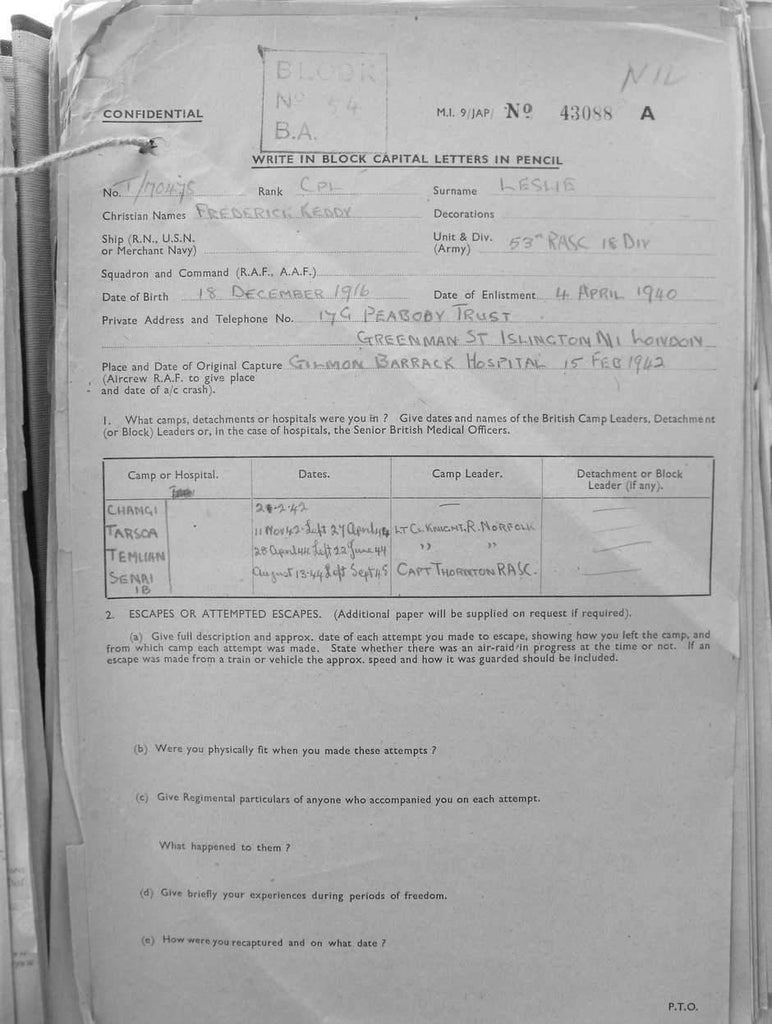 BLOCK
Nº 54
B.A.
NIL
CONFIDENTIAL
M.I. 9/JAP/ Nº 43088 A
WRITE IN BLOCK CAPITAL LETTERS IN PENCIL
No. T/170475 Rank CPL Surname LESLIE
Christian Names FREDERICK KEDDY Decorations
Ship (R.N., U.S.N. or Merchant Navy) Unit & Div. (Army) 53rd RASC 18 DIV
Squadron and Command (R.A.F., A.A.F.)
Date of Birth 18 DECEMBER 1916 Date of Enlistment 4 APRIL 1940
Private Address and Telephone No. 17G PEABODY TRUST
GREENMAN ST ISLINGTON N1 LONDON
Place and Date of Original Capture GILMON BARRACK HOSPITAL 15 FEB 1942
(Aircrew R.A.F. to give place
and date of a/c crash).
1. What camps, detachments or hospitals were you in ? Give dates and names of the British Camp Leaders, Detachment
(or Block) Leaders or, in the case of hospitals, the Senior British Medical Officers.
Camp or Hospital. Dates. Camp Leader. Detachment or Block Leader (if any).
CHANGI 21-2-42 —
TARSOA 11 Nov 42 - Left 27 April 44 LT CL KNIGHT. R. NORFOLK —
TEMUAN 28 April 44 Left 22 June 44 " " —
SENAI August 13-44 Left Sept 45 CAPT THORNTON RASC. —
1B
2. ESCAPES OR ATTEMPTED ESCAPES. (Additional paper will be supplied on request if required).
(a) Give full description and approx. date of each attempt you made to escape, showing how you left the camp, and
from which camp each attempt was made. State whether there was an air-raid in progress at the time or not. If an
escape was made from a train or vehicle the approx. speed and how it was guarded should be included.
(b) Were you physically fit when you made these attempts ?
(c) Give Regimental particulars of anyone who accompanied you on each attempt.
What happened to them ?
(d) Give briefly your experiences during periods of freedom.
(e) How were you recaptured and on what date ?
P.T.O.